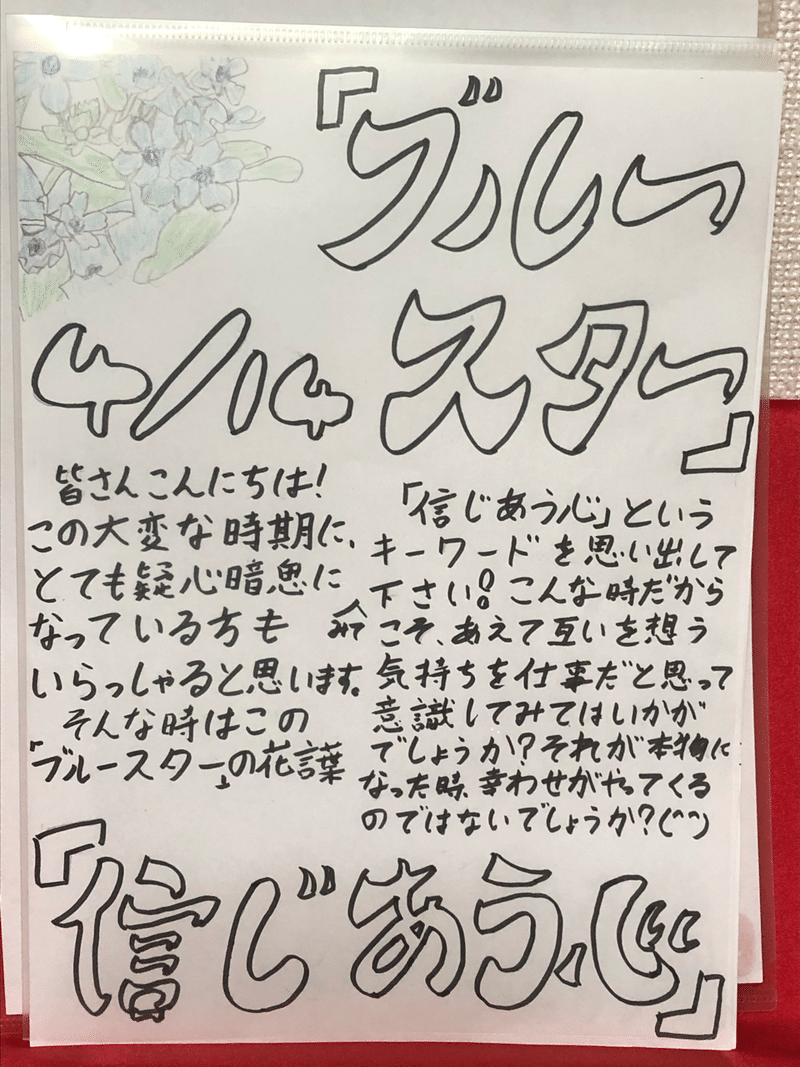 『ブルー
スター』
4/14
皆さんこんにちは!
この大変な時期に、
とても疑心暗鬼に
なっている方も
いらっしゃると思います。
そんな時はこの
「ブルースター」の花言葉
「信じあう心」という
キーワードを思い出して
下さい!!こんな時だから
こそ、あえて互いを想う
気持ちを仕事だと思って
意識してみてはいかが
でしょうか?それが本物に
なった時、幸わせがやってくる
のではないでしょうか?(^^)
『信じあう心』